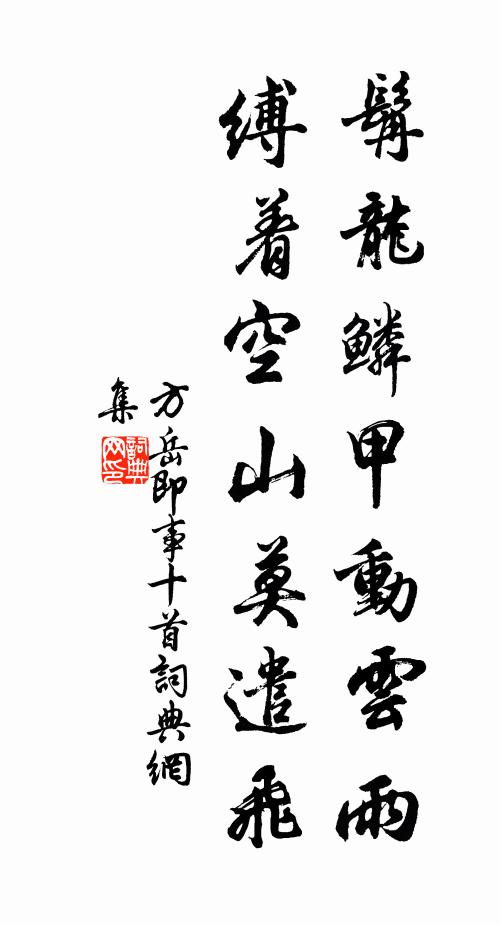 髯龍鱗甲動雲雨
縛着空山莫遣飛
方岳即事十首詞典網
集
詞典網印